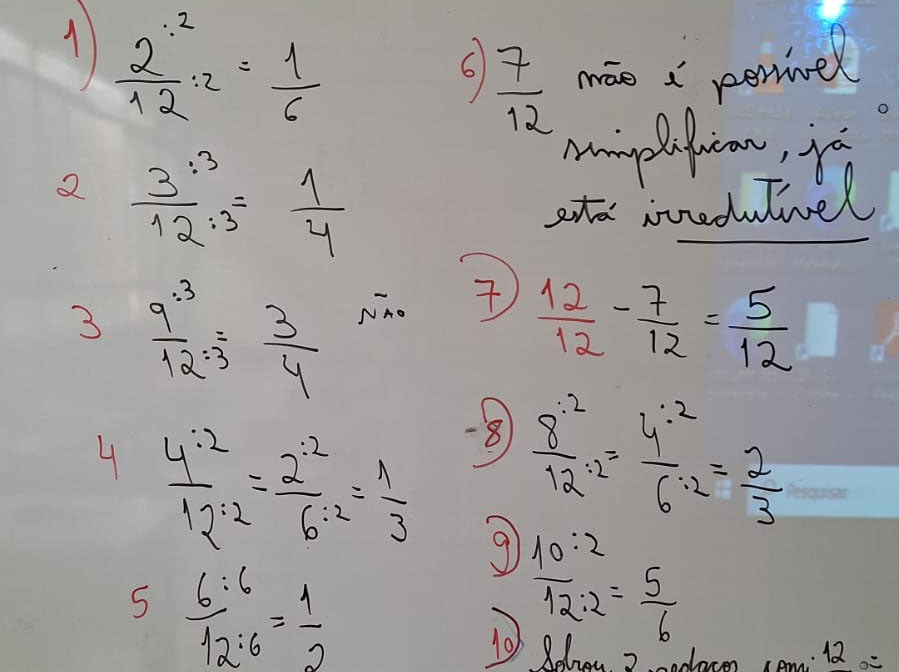 1) 2:2/12:2 = 1/6
2 3:3/12:3 = 1/4
3 9:3/12:3 = 3/4 NÃO
4 4:2/12:2 = 2:2/6:2 = 1/3
5 6:6/12:6 = 1/2
6) 7/12 não é possível
simplificar, já
está irredutível
7) 12/12 - 7/12 = 5/12
8) 8:2/12:2 = 4:2/6:2 = 2/3
Pesquisar
9) 10:2/12:2 = 5/6
10) Sobrou 2 pedaços, 12